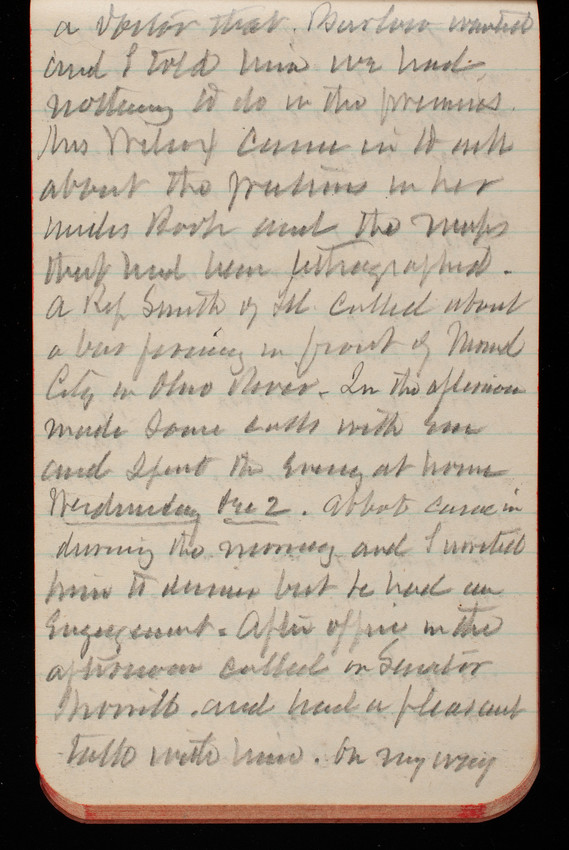 a doctor that. Barlow wanted
and I told him we had
nothing to do in the premises.
Mrs Wilson came in to ask
about the positions in her
Guide Book and the maps
that had been lithographed.
A Rep Smith of Ill called about
a bar forming in front of Mound
City in Ohio River. In the afternoon
made some calls with Em
and spent the Evening at home
Wednesday Dec 2. Abbot came in
during the morning and I invited
him to dinner but he had an
Engagement. After office in the
afternoon called on Senator
Morrill. and had a pleasant
talk with him. On my way